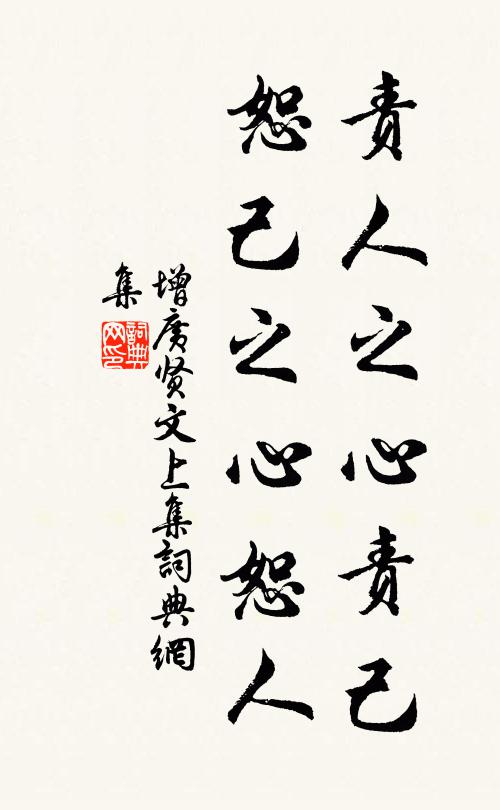 责人之心责己
恕己之心恕人
增广贤文上集詞典網
集
詞典网印